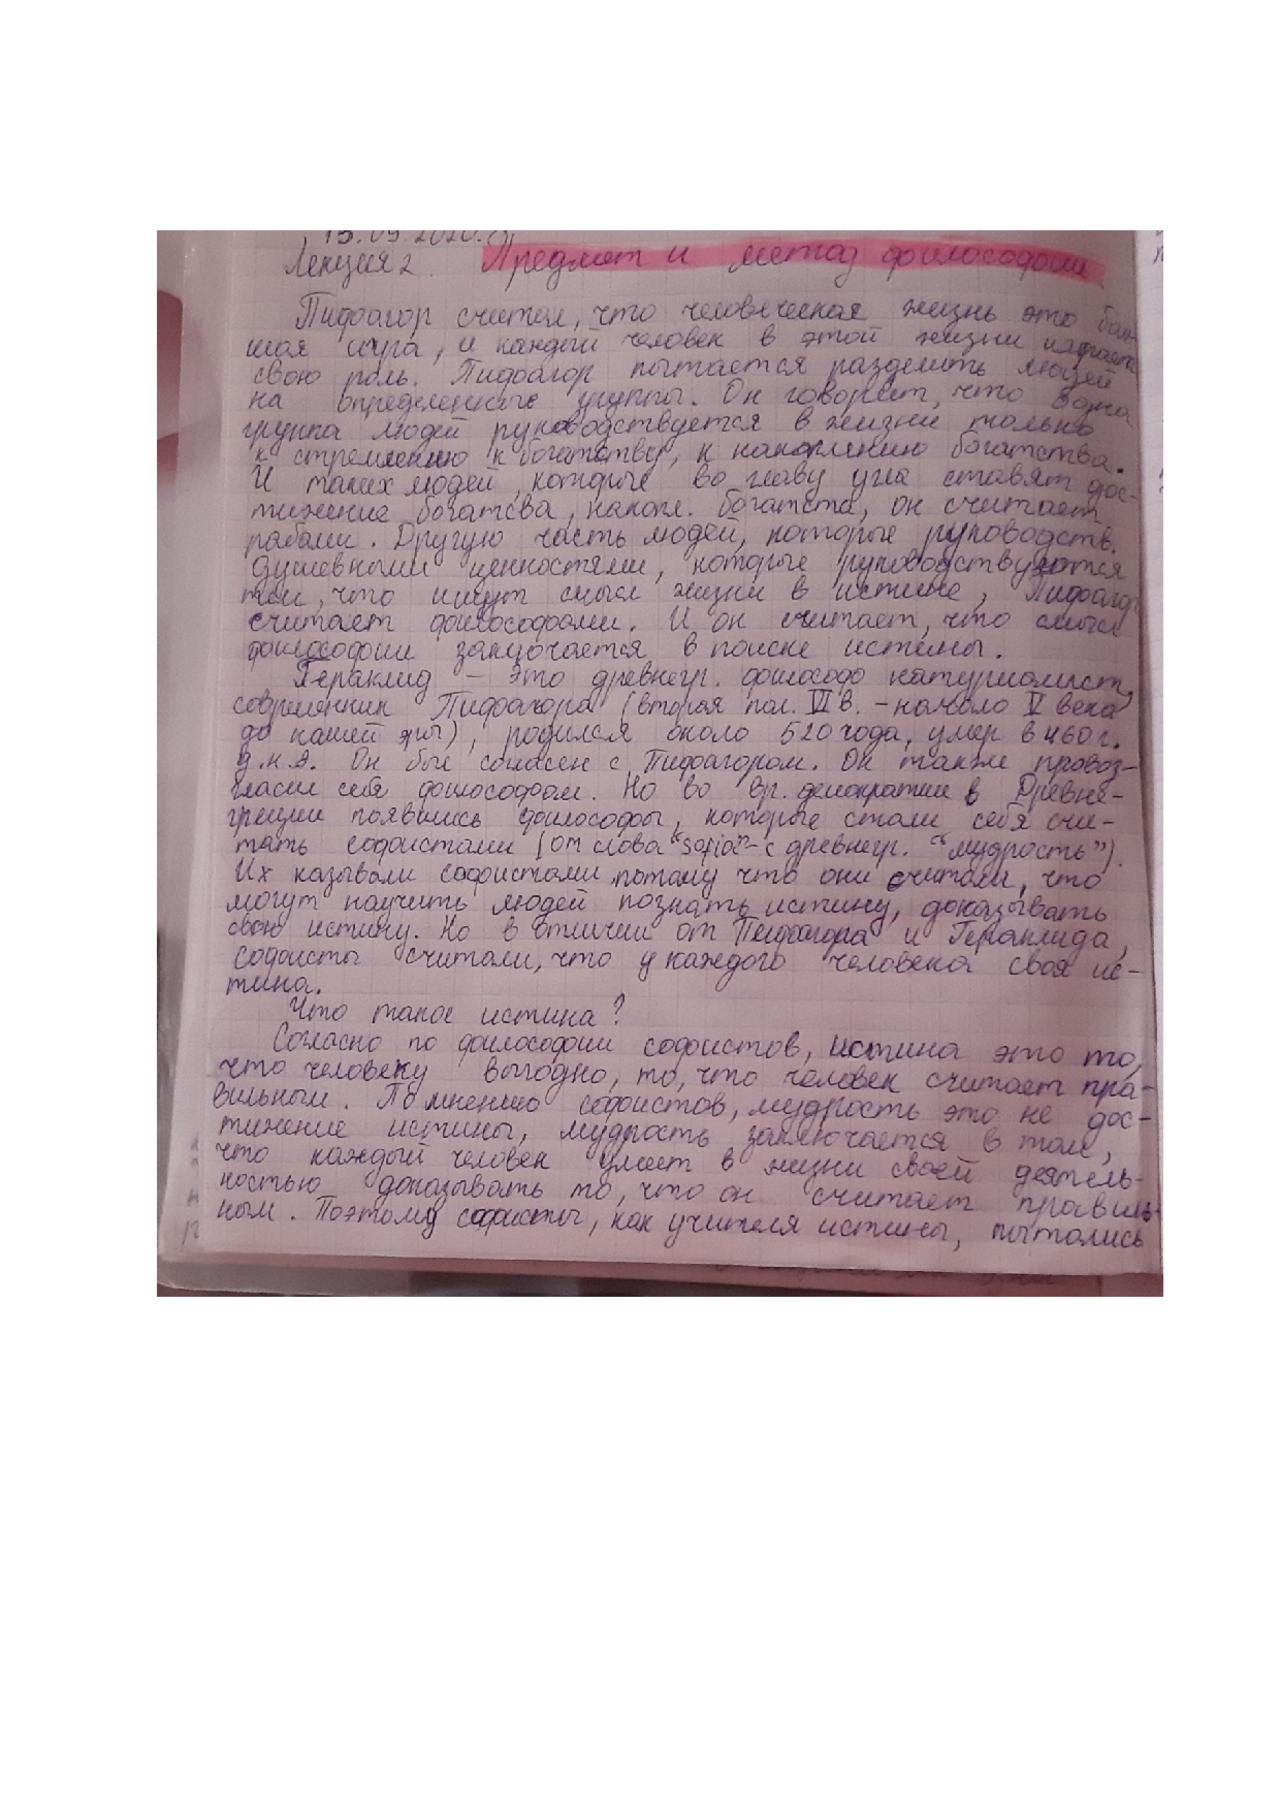 15.09.2020.
Лекция 2. Предмет и метод философии
Пифагор считал, что человеческая жизнь это боль-
шая игра, и каждый человек в этой жизни играет
свою роль. Пифагор пытается разделить людей
на определенные группы. Он говорит, что одна
группа людей руководствуется в жизни только
к стремлению к богатству, к накоплению богатства.
И таких людей, которые во главу угла ставят дос-
тижение богатсва, накопл. богатста, он считает
рабами. Другую часть людей, которые руководств.
душевными ценностями, которые руководствуются
тем, что ищут смысл жизни в истине, Пифагор
считает философами. И он считает, что смысл
философии заключается в поиске истины.
Гераклид – это древнегр. философ натуриалист,
современник Пифагора (вторая пол. VI в. – начало V века
до нашей эры), родился около 520 года, умер в 460 г.
д.н.э. Он был согласен с Пифагором. Он также провоз-
гласил себя философом. Но во вр. демократии в Древне-
греции появились философы, которые стали себя счи-
тать софистами (от слова "sofia" - с древнегр. "мудрость").
Их называли софистами потому что они считали, что
могут научить людей познать истину, доказывать
свою истину. Но в отличии от Пифагора и Гераклида,
софисты считали, что у каждого человека своя ис-
тина.
Что такое истина?
Согласно по философии софистов, истина это то,
что человеку выгодно, то, что человек считает пра-
вильным. По мнению софистов, мудрость это не дос-
тижение истины, мудрость заключается в том,
что каждый человек умеет в жизни своей деятель-
ностью доказывать то, что он считает правиль-
ным. Поэтому софисты, как учителя истины, пытались